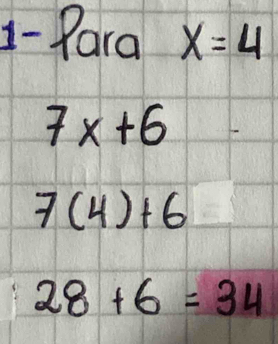 1- Para x=4
7x+6
7(4)+6
28+6=34